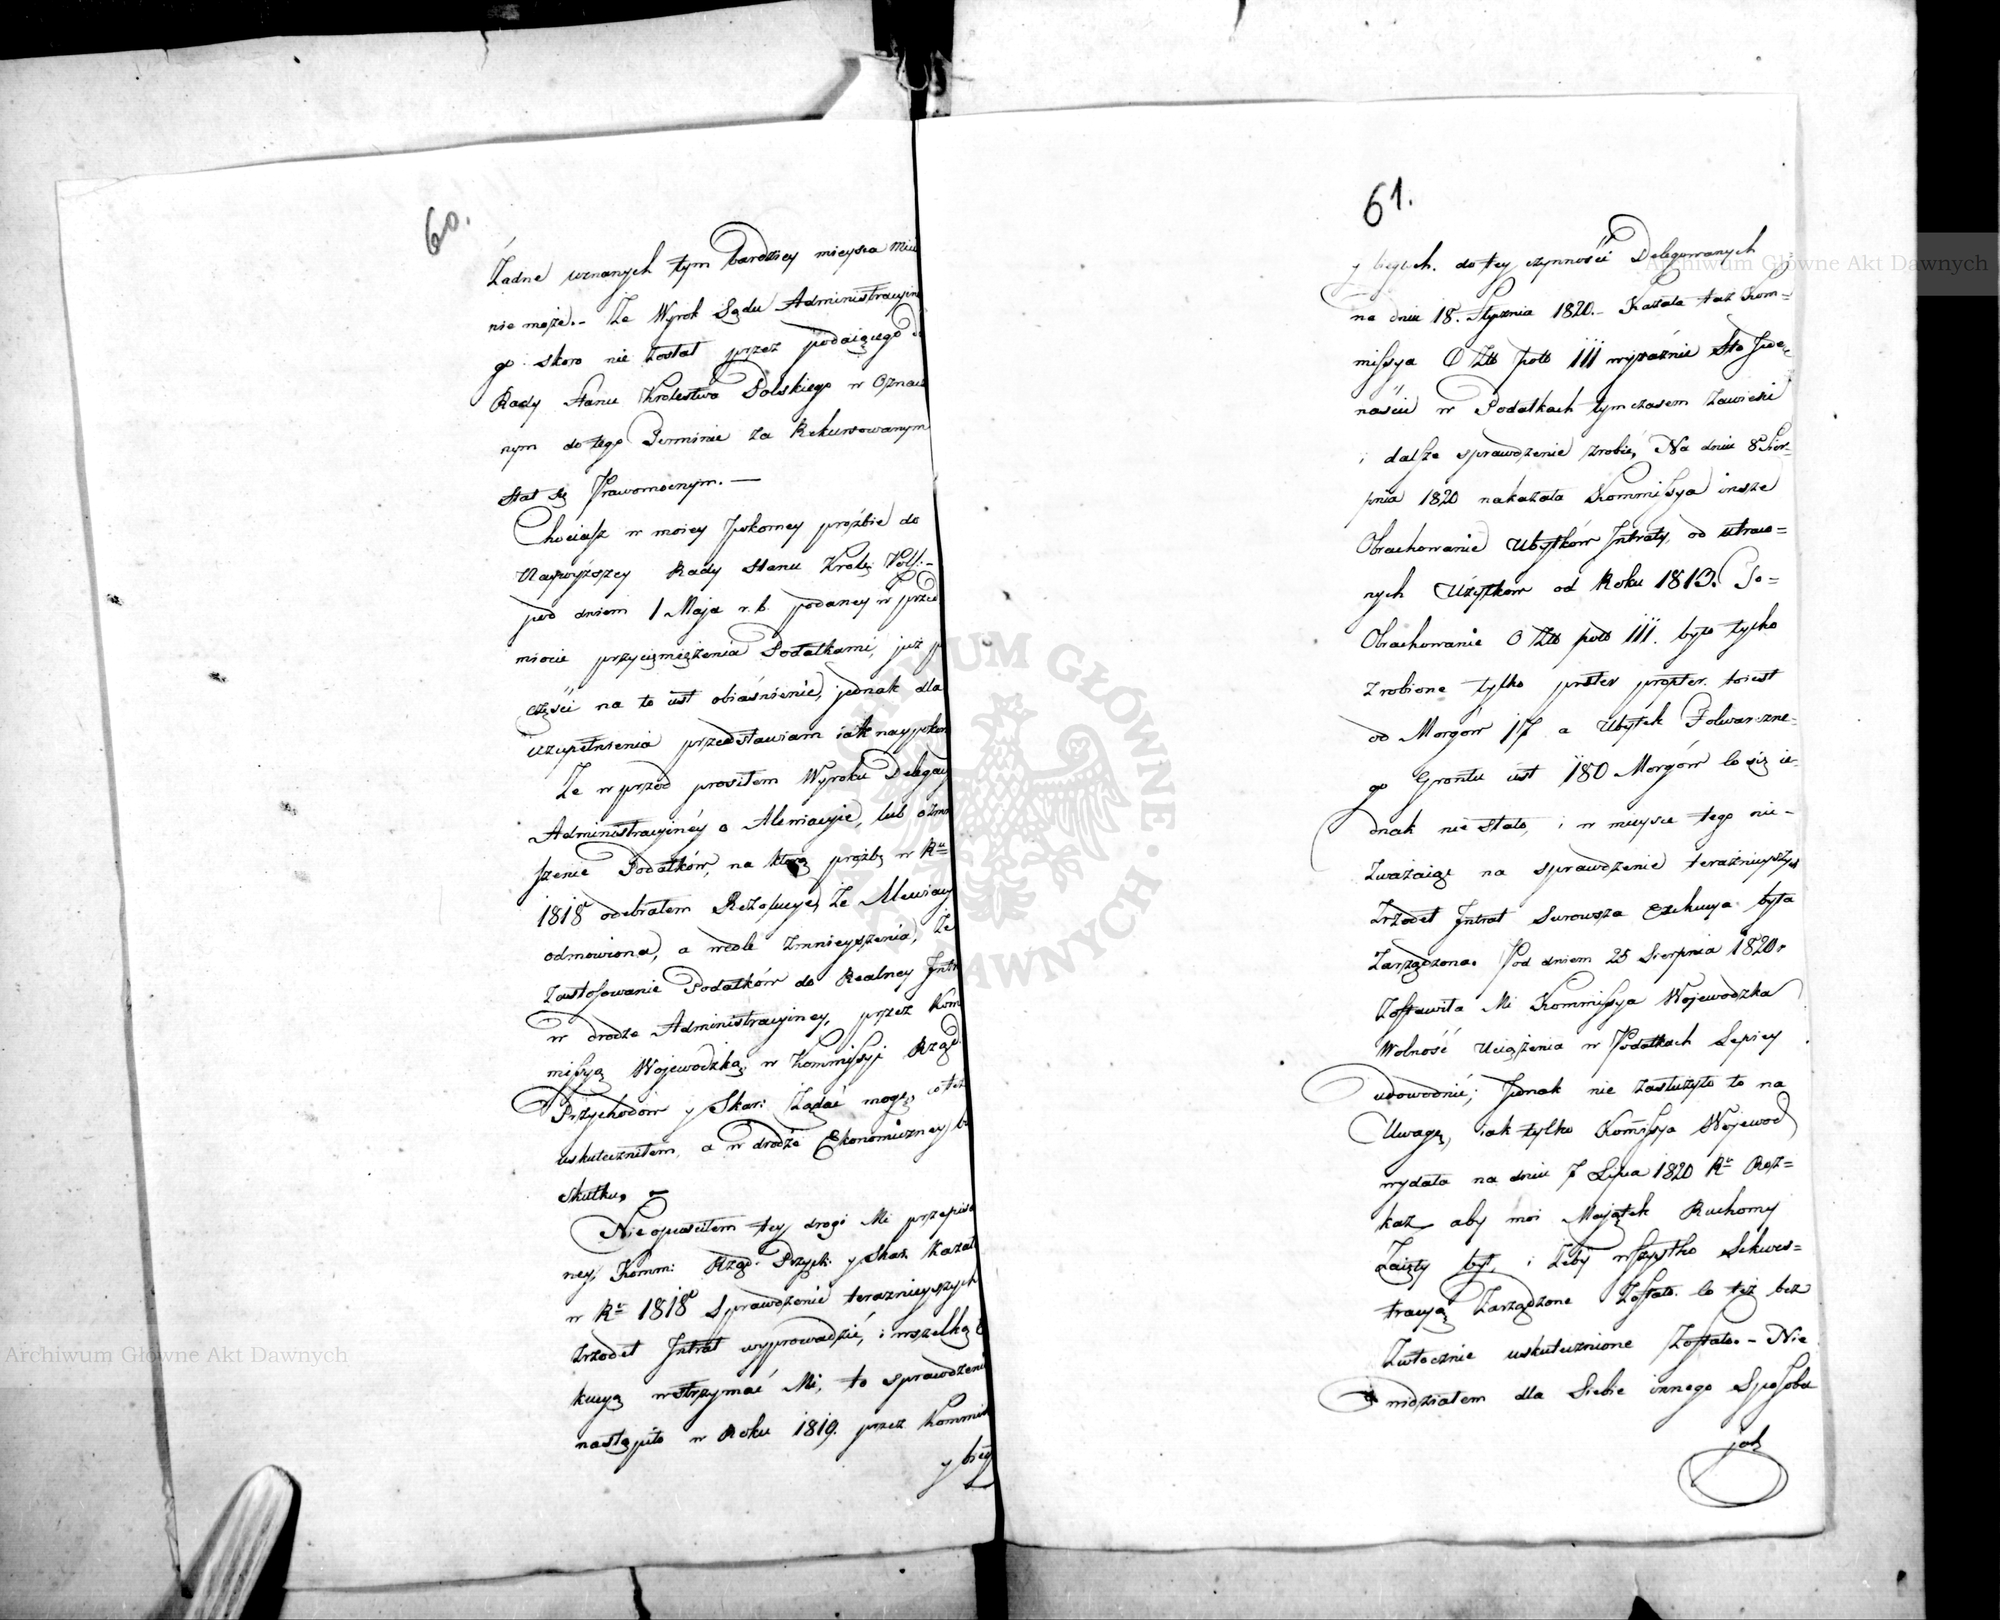 60.
Żadne uznanych tym bardziey mieysca mieć
nie może. – Że Wyrok Sądu Administracyine
go skoro nie został przez podaiącego do
Rady Stanu Królestwa Polskiego w Oznaczo
nym do tego Terminie za Rekursowanym
stał się Prawomocnym. —
Chociasz w moiey pokorney proźbie do
Naywyższey Rady Stanu Króle: Pols: –
pod dniem 1 Maja r. b. podaney w przed
miocie przyciemiężenia Podatkami, już po
części na to iest obiaśnienie, jednak dla
uzupełnienia przedstawiam iak naypokor
Że w przód prosiłem Wyroku Delegacyi
Administracyiney o Alewiacyie, lub o zmni
szenie Podatków, na którą proźbę w Ru
1818 odebrałem Rezolucye, że Alewiacy
odmowiona, a wedle Zmnieyszenia, że
Zastosowanie Podatków do Realney Intra
w drodze Administracyiney, przez Kom
missyą Wojewodzką w Kommissyi Rząd
Przychodów y Skar: Żądać mogę, co też
uskuteczniłem, a w drodze Ekonomiczney bez
skutku. –
Nie opuściłem tey drogi Mi przepisa
ney, Komm: Rząd: Przych: y Skar: Kazała
w Ru 1818 Sprawdzenie terażnieyszych
Zrzodeł Intrat wyprowadzić, i wszelką E
kucyą wstrzymać Mi, to sprawdzenie
nastąpiło w Roku 1819. przez Kommis
y bieg
61.
y biegłych. do tey czynności Delegowanych
na dniu 18. Stycznia 1820. – Kazała też Kom=
missya O Ztt pols III wyraźnie Sto
naści w Podatkach tymczasem Zawiesić
i dalsze sprawdzenie zrobić, Na dniu 8 Sier-
pnia 1820 nakazała Kommissya insze
Obrachowanie Ubytków Intraty, od utraco=
nych Użytków od Roku 1813. To=
Obrachowanie O Ztt pols III. było tylko
Zrobione tylko preter propter. toiest
od Morgów 17 a Ubytek Folwarczne-
go Gruntu iest 180 Morgów Co się ie-
dnak nie stało, i w mieysce tego nie-
Zważaiąc na sprawdzenie terażnieyszych
Zrzodeł Intrat Surowsza Exekucya była
Zarządzona. Pod dniem 25 Sierpnia 1820r
Zostawiła Mi Kommissya Wojewodzka
Wolność Uciążenia w Podatkach Lepiey
udowodnić; Jednak nie zasłużyło to na
Uwagę, iak tylko Komissya Wojewod
wydała na dniu 7 Lipca 1820 Ru Roz=
kaz aby moi Majątek Ruchomy
Zaięty był, i żeby wszystko Sekwes=
tracyą Zarządzone Zostało. Co też bez
Zwłocznie uskutecznione Zostało. – Nie
widziałem dla Siebie innego Sposobu
jak
Archiwum Główne Akt Dawnych
Archiwum Główne Akt Dawnych
ARCHIWUM GŁÓWNE AKT DAWNYCH